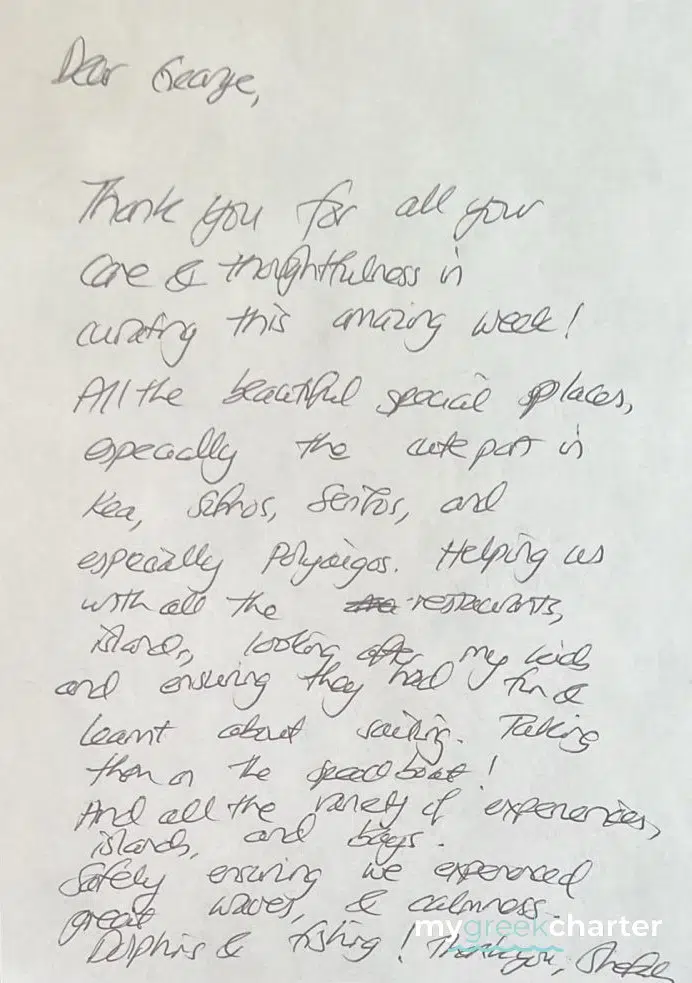 Dear George,
Thank you for all your
care & thoughtfulness in
curating this amazing week!
All the beautiful special places,
especially the cute port in
Kea, Sifnos, Serifos, and
especially Polyaigos. Helping us
with all the restaurants,
islands, looking after my kids
and ensuring they had fun &
learnt about sailing. Taking
them on the speed boat!
And all the variety of experiences,
islands, and bays.
Safely ensuring we experienced
great waves, & calmness.
mygreekcharter
Dolphins & fishing! Thank you,